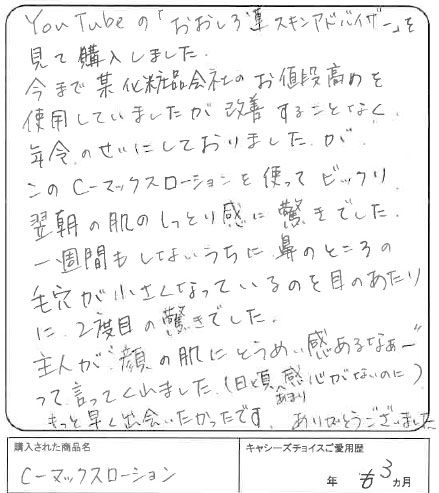 YouTubeの「おおしろ導スキンアドバイザー」を
見て購入しました.
今まで某化粧品会社のお値段高めを
使用していましたが改善することなく.
年令.のせいにしておりました.が.
このC-マックスローションを使ってビックリ.
翌朝の肌のしっとり感に驚きでした.
一週間もしないうちに.鼻のところの
毛穴が小さくなっているのを目のあたり
に.2度目の驚きでした.
主人が「顔の肌にとうめい感あるなぁ〜」
って.言ってくれました.(日頃あまり感心がないのに)
もっと早く出会いたかったです.ありがとうございました
購入された商品名
キャシーズチョイスご愛用歴
C-マックスローション
年 3ヵ月